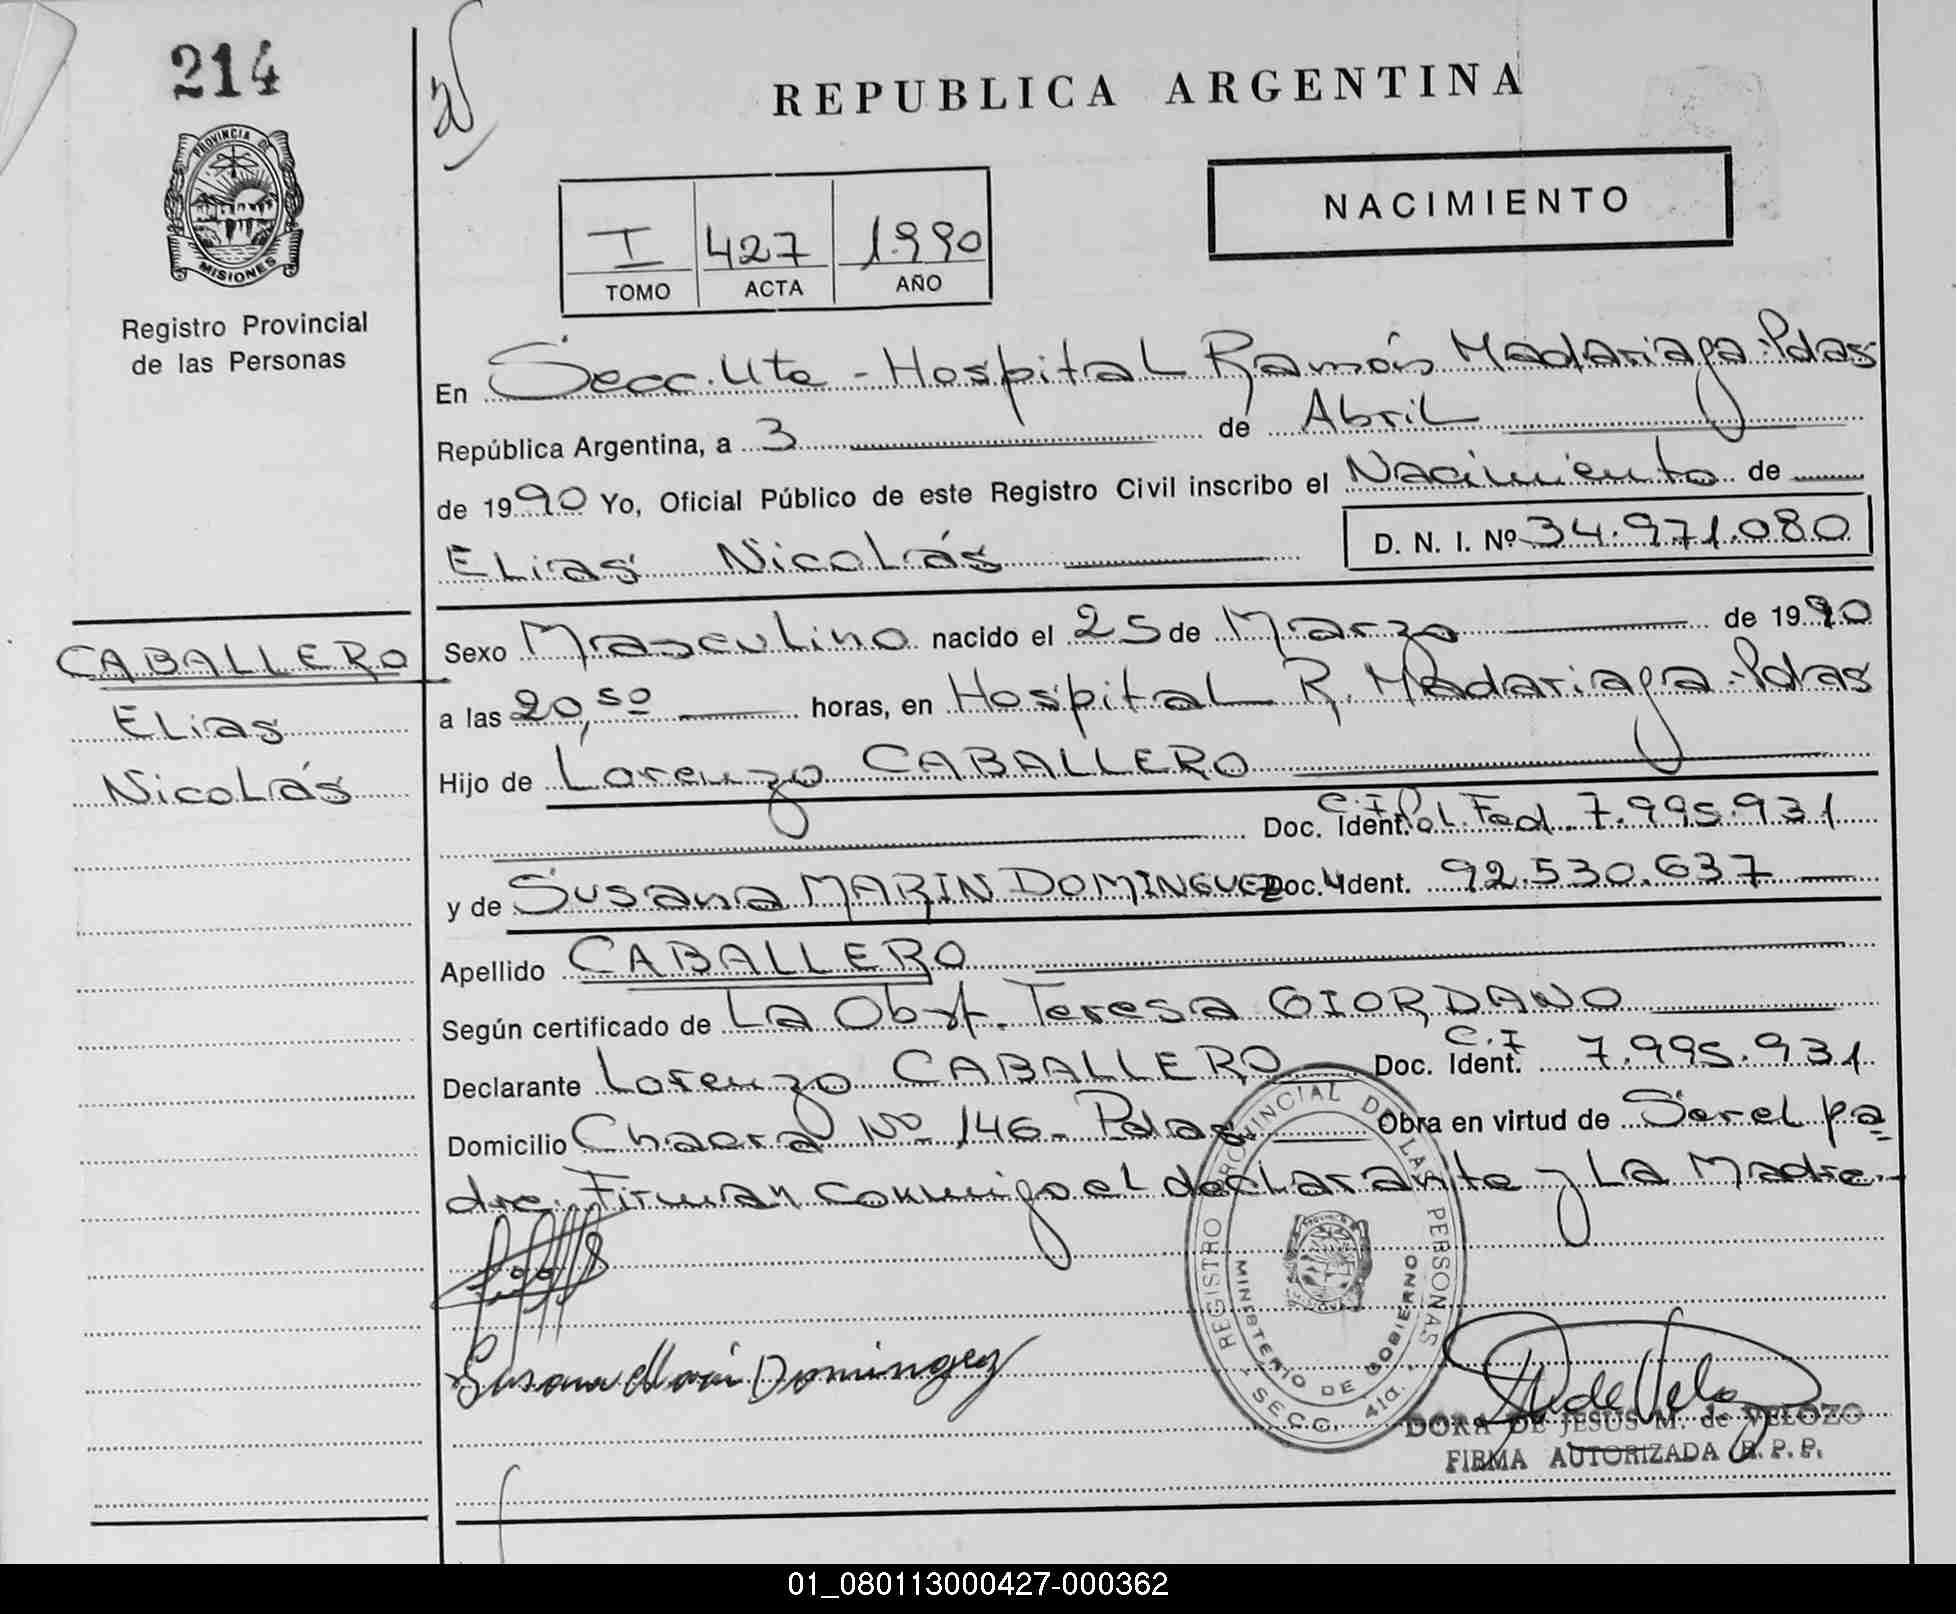 214
PROVINCIA DE
MISIONES
Registro Provincial
de las Personas
REPUBLICA ARGENTINA
NACIMIENTO
I 427 1.990
TOMO ACTA AÑO
En Secc. Uta - Hospital Ramón Madariaga - Pdas
República Argentina, a 3 de Abril
de 1990 Yo, Oficial Público de este Registro Civil inscribo el Nacimiento de
ELias NicoLás
D. N. I. Nº 34.971.080
CABALLERO
ELias
NicoLás
Sexo Masculino nacido el 25 de Marzo de 1990
a las 20,50 horas, en Hospital R. Madariaga - Pdas
Hijo de Lorenzo CABALLERO
Doc. Ident. C.I. Pol. Fed. 7.995.931
y de Susana MARIN DOMINGUEZ Doc. Ident. 92.530.637
Apellido CABALLERO
Según certificado de La Obst. Teresa GIORDANO
Declarante Lorenzo CABALLERO Doc. Ident. C.I 7.995.931
Domicilio Chacra Nº 146 - Pdas Obra en virtud de Ser el pa
dre. Firman conmigo el declarante y La Madre.-
REGISTRO PROVINCIAL DE LAS PERSONAS
MINISTERIO DE GOBIERNO
SECC. 41a.
Susana Marin Dominguez
DORA DE JESUS M. de VELOZO
FIRMA AUTORIZADA R. P. P.
01_080113000427-000362